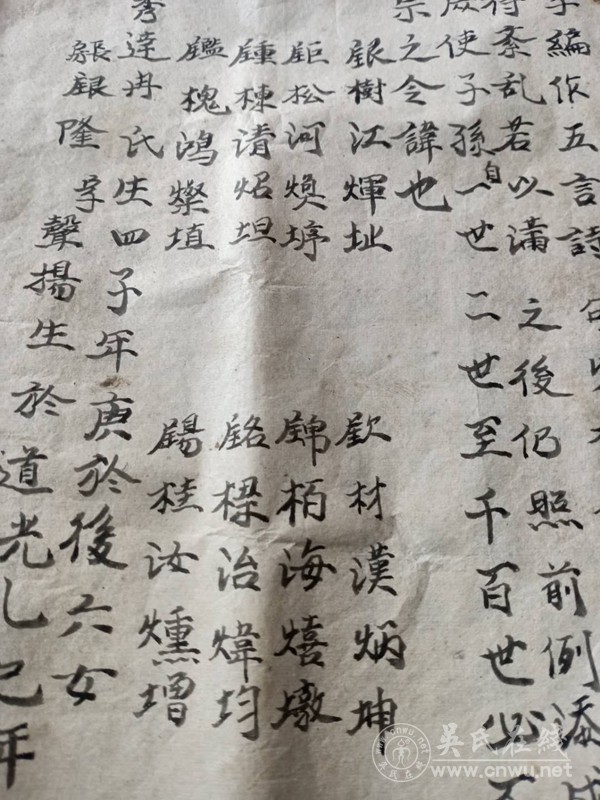 字編作五言詩
紊乱若以滿之後仍照前例添成
使子孫自一世二世至千百世必不
宗之令諱也
銀樹江煇址 欽材漢炳坤
鉅松河煥埻 錦柏海熺墩
鍾棟清炤坦 銘樑治煒均
鑑槐鴻燦埴 錫桂汝燻增
秀達冉氏生四子年庚於後六女
銀隆字聲揚生於道光乙巳年
吳氏在线
www.cnwu.net